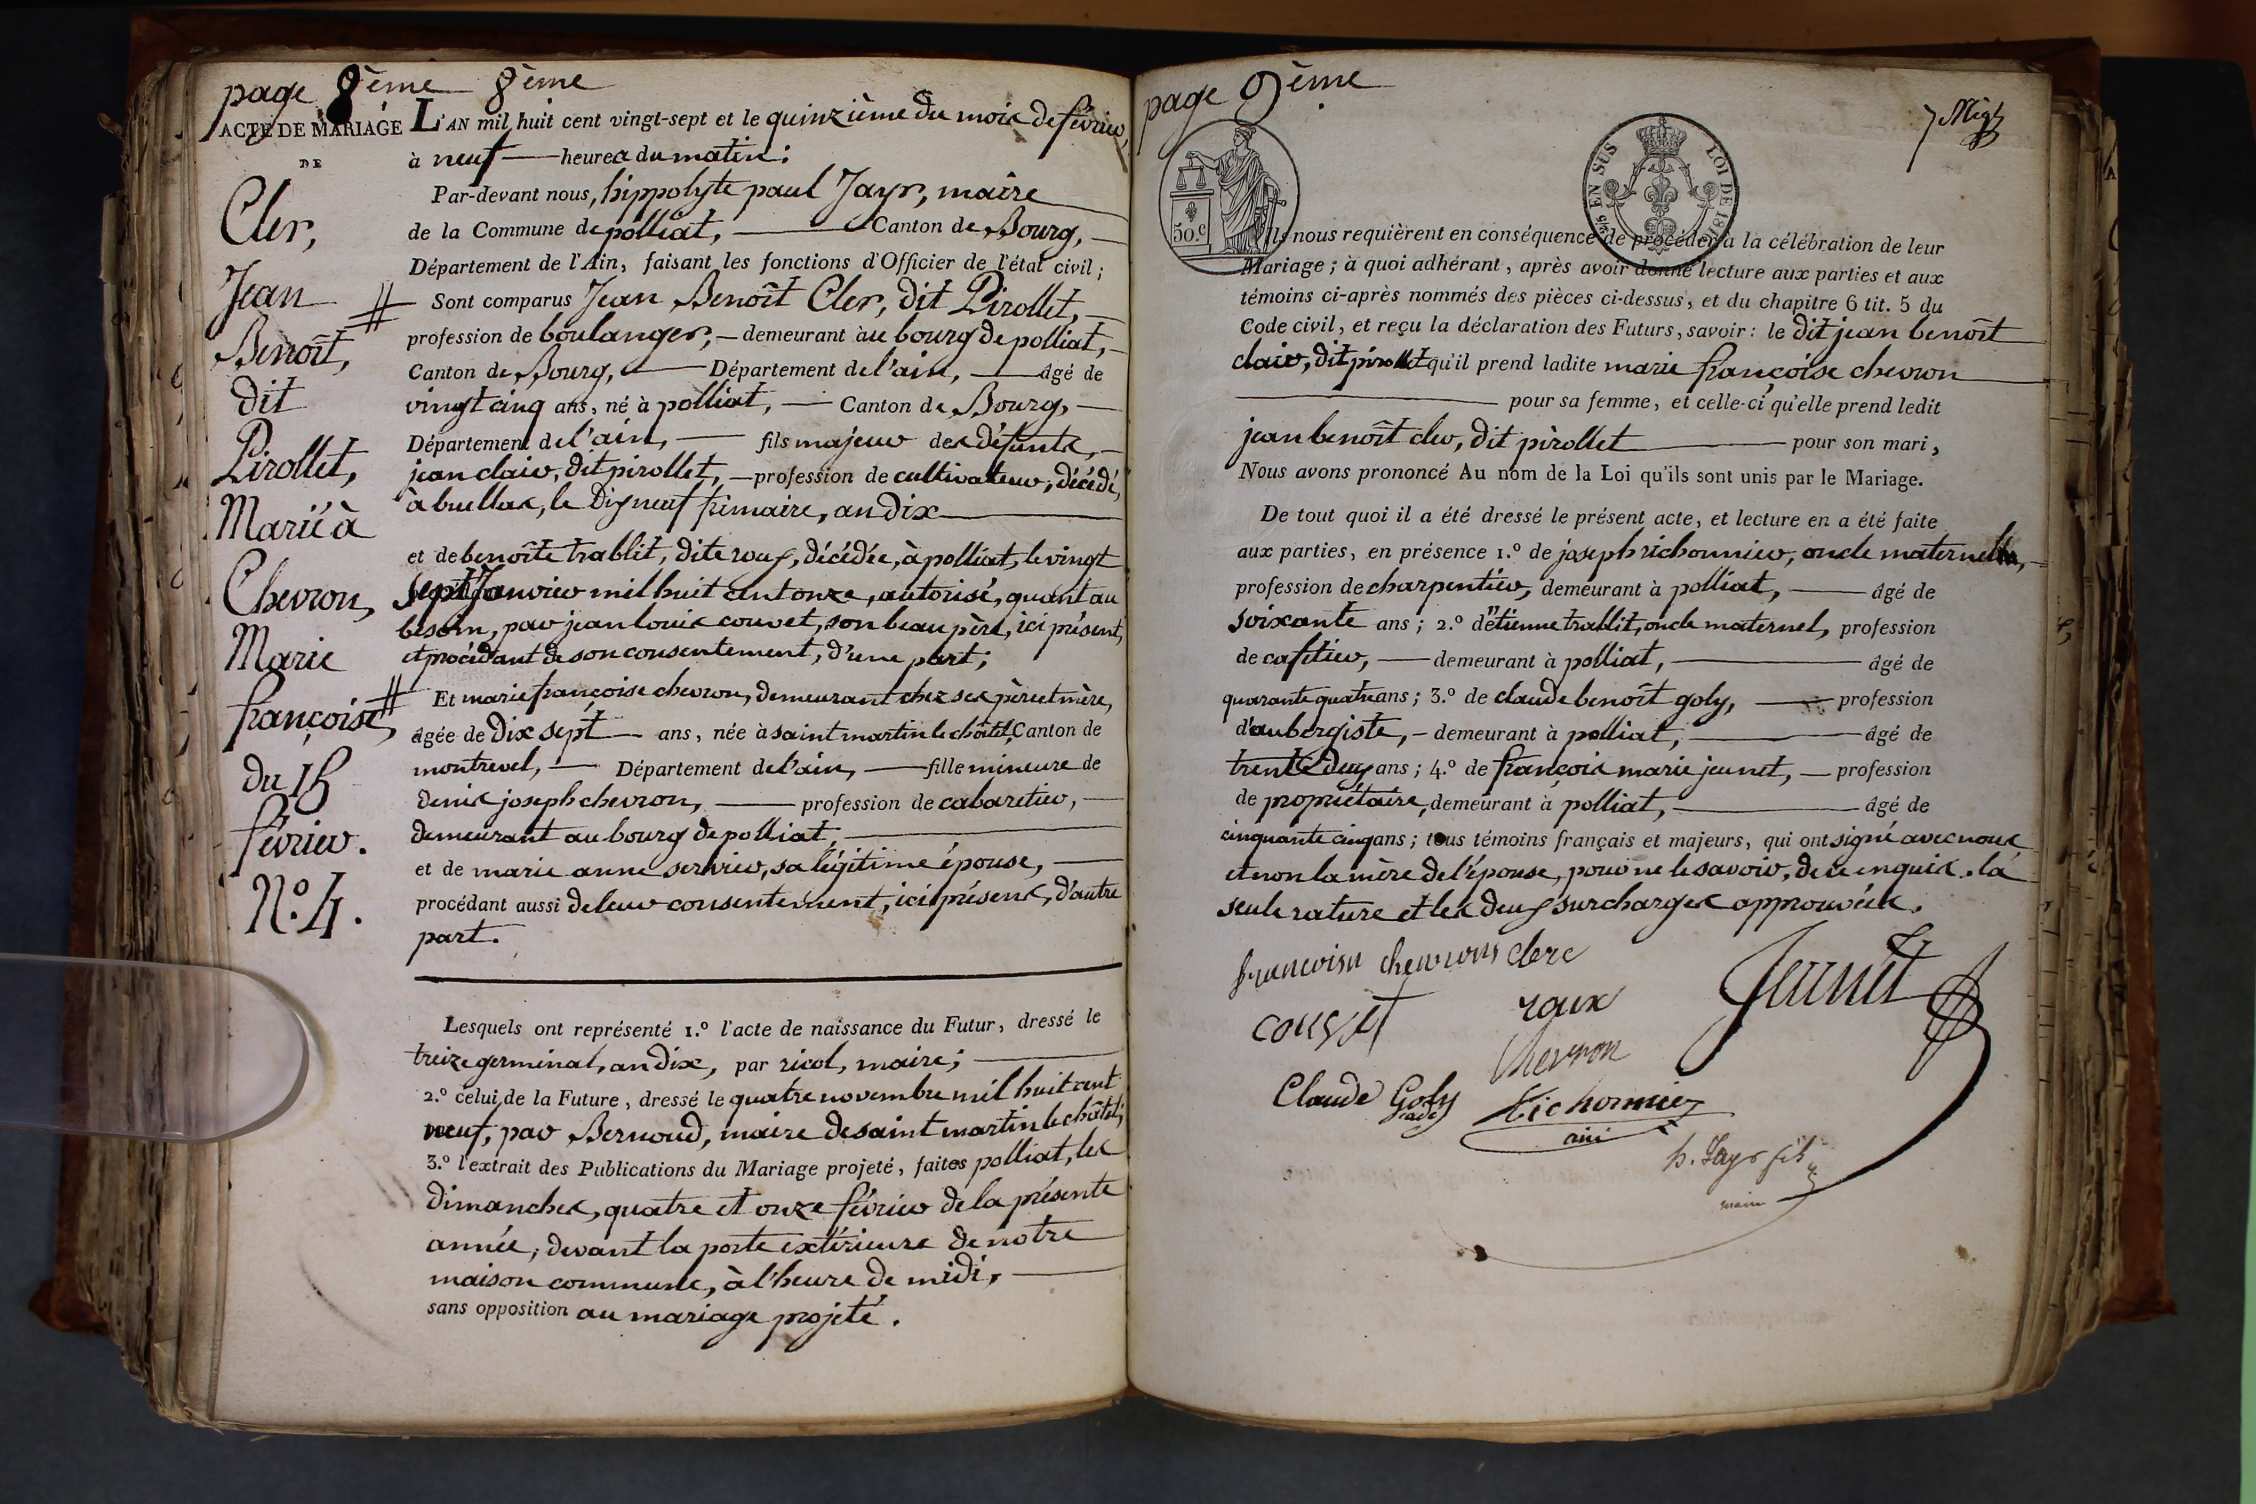 page 8ème 8ème
ACTE DE MARIAGE
DE
Cler,
Jean
Benoît,
dit
Pirollet,
Marié à
Chevron,
Marie
françoise,
du 15
février.
N.o 4.
L'AN mil huit cent vingt-sept et le quinzième du mois de février,
à neuf heures du matin;
Par-devant nous, hippolyte paul Jayr, maire
de la Commune de polliat, Canton de Bourg,
Département de l'Ain, faisant les fonctions d'Officier de l'état civil;
Sont comparus Jean Benoît Cler, dit Pirollet,
profession de boulanger, demeurant au bourg de polliat,
Canton de Bourg, Département de l'ain, âgé de
vingt cinq ans, né à polliat, Canton de Bourg,
Département de l'ain, fils majeur des défunts,
jean clair, dit pirollet, profession de cultivateur, décédé,
à buellas, le dix neuf frimaire, an dix
et de benoîte trablit, dite roux, décédée, à polliat, le vingt
sept Janvier mil huit cent onze, autorisé, quant au
besoin, par jean louis couvet, son beau père, ici présent,
et procédant de son consentement, d'une part;
Et marie françoise chevron, demeurant chez ses père et mère,
âgée de dix sept ans, née à saint martin le châtel, Canton de
montrevel, Département de l'ain, fille mineure de
denis joseph chevron, profession de cabaretier,
demeurant au bourg de polliat,
et de marie anne servier, sa légitime épouse,
procédant aussi de leur consentement, ici présens, d'autre
part.
Lesquels ont représenté 1.o l'acte de naissance du Futur, dressé le
treize germinal, an dix, par ricol, maire;
2.o celui de la Future, dressé le quatre novembre mil huit cent
neuf, par Bernoud, maire de saint martin le châtel;
3.o l'extrait des Publications du Mariage projeté, faites polliat, les
dimanches, quatre et onze février de la présente
année, devant la porte extérieure de notre
maison commune, à l'heure de midi,
sans opposition au mariage projeté.
page 9ème
50.c
EN SUS
LOI DE
Ils nous requièrent en conséquence de procéder à la célébration de leur
Mariage; à quoi adhérant, après avoir donné lecture aux parties et aux
témoins ci-après nommés des pièces ci-dessus, et du chapitre 6 tit. 5 du
Code civil, et reçu la déclaration des Futurs, savoir: le dit jean benoît
clair, dit pirollet qu'il prend ladite marie françoise chevron
pour sa femme, et celle-ci qu'elle prend ledit
jean benoît cler, dit pirollet pour son mari,
Nous avons prononcé Au nom de la Loi qu'ils sont unis par le Mariage.
De tout quoi il a été dressé le présent acte, et lecture en a été faite
aux parties, en présence 1.o de joseph richonnier, oncle maternel,
profession de charpentier, demeurant à polliat, âgé de
soixante ans; 2.o d'étienne trablit, oncle maternel, profession
de cafetier, demeurant à polliat, âgé de
quarante quatre ans; 3.o de claude benoît goly, profession
d'aubergiste, demeurant à polliat, âgé de
trente deux ans; 4.o de françois marie jeunet, profession
de propriétaire, demeurant à polliat, âgé de
cinquante cinq ans; tous témoins français et majeurs, qui ont signé avec nous
et non la mère de l'épouse, pour ne le savoir, de ce enquis. la
seule rature et les deux surcharges approuvées.
francoise chevrons clerc
couvet roux Jeunet
chevron
Claude Goly Richonnier
h. Jayr fils
maire